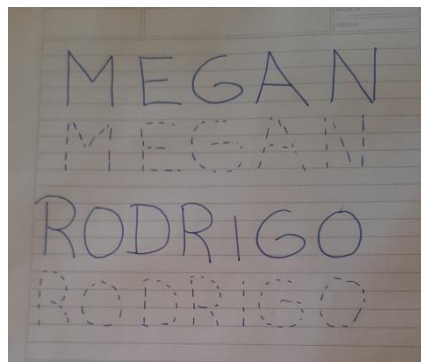 MEGAN
MEGAN
RODRIGO
RODRIGO